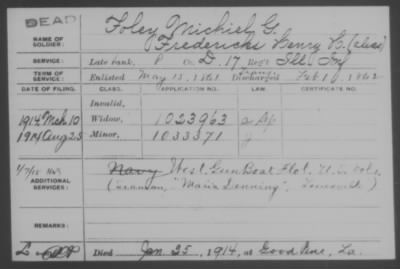 DEAD
Foley Michiel G.
NAME OF SOLDIER:
Fredericks Henry G. (alias)
SERVICE:
Late rank, P Co. D, 17 Reg't Ill. Inf
TERM OF SERVICE:
Enlisted May 15, 1861 Discharged Feb 10, 1862
DATE OF FILING. CLASS. APPLICATION NO. LAW. CERTIFICATE NO.
Invalid,
1914 Mch 10 Widow, 1023963
1914 Aug 25 Minor, 1033371
ADDITIONAL SERVICES:
Navy West. Gun Boat Flot. U.S. Vols.
(Seaman, "Maria Denning",
REMARKS:
Died Jan. 25, 1914, at Good Pine, La.